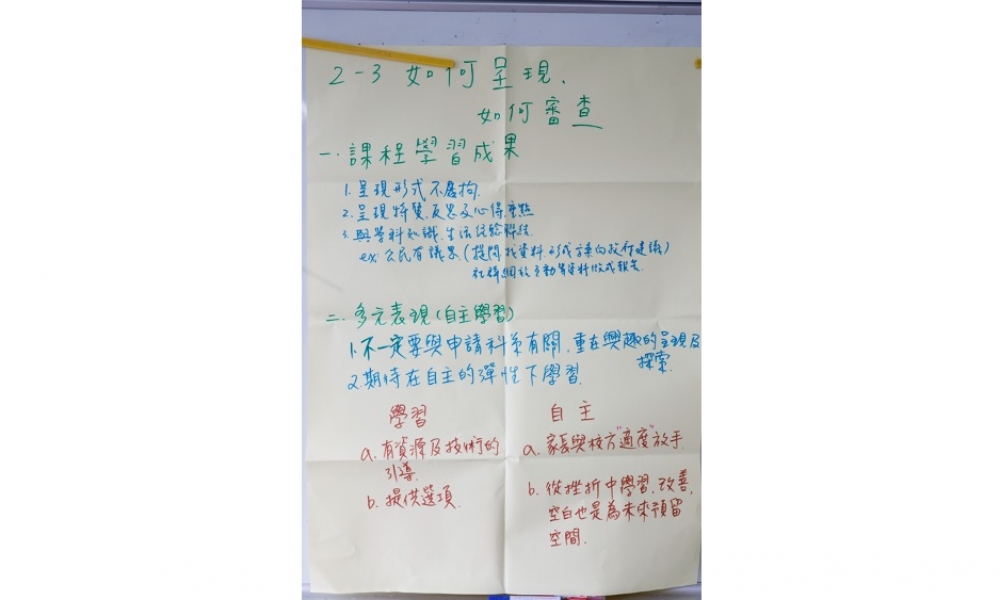 2-3 如何呈現、
如何審查
一.課程學習成果
1.呈現形式不居拘.
2.呈現特質.反思及心得.重點
3.與學科知識.生活經驗聯結.
ex:公民有議器(提問.找資料.形成方案向校作建議)
社群網路互動等資料做成報告.
二.多元表現(自主學習)
1.不一定要與申請科系有關.重在興趣的呈現及
探索.
2.期待在自主的彈性下學習.
學習
a.有資源及技術的
引導.
b.提供選項.
自主
a.家長與校方"適度"放手.
b.從挫折中學習.改善.
空白也是為未來預留
空間.